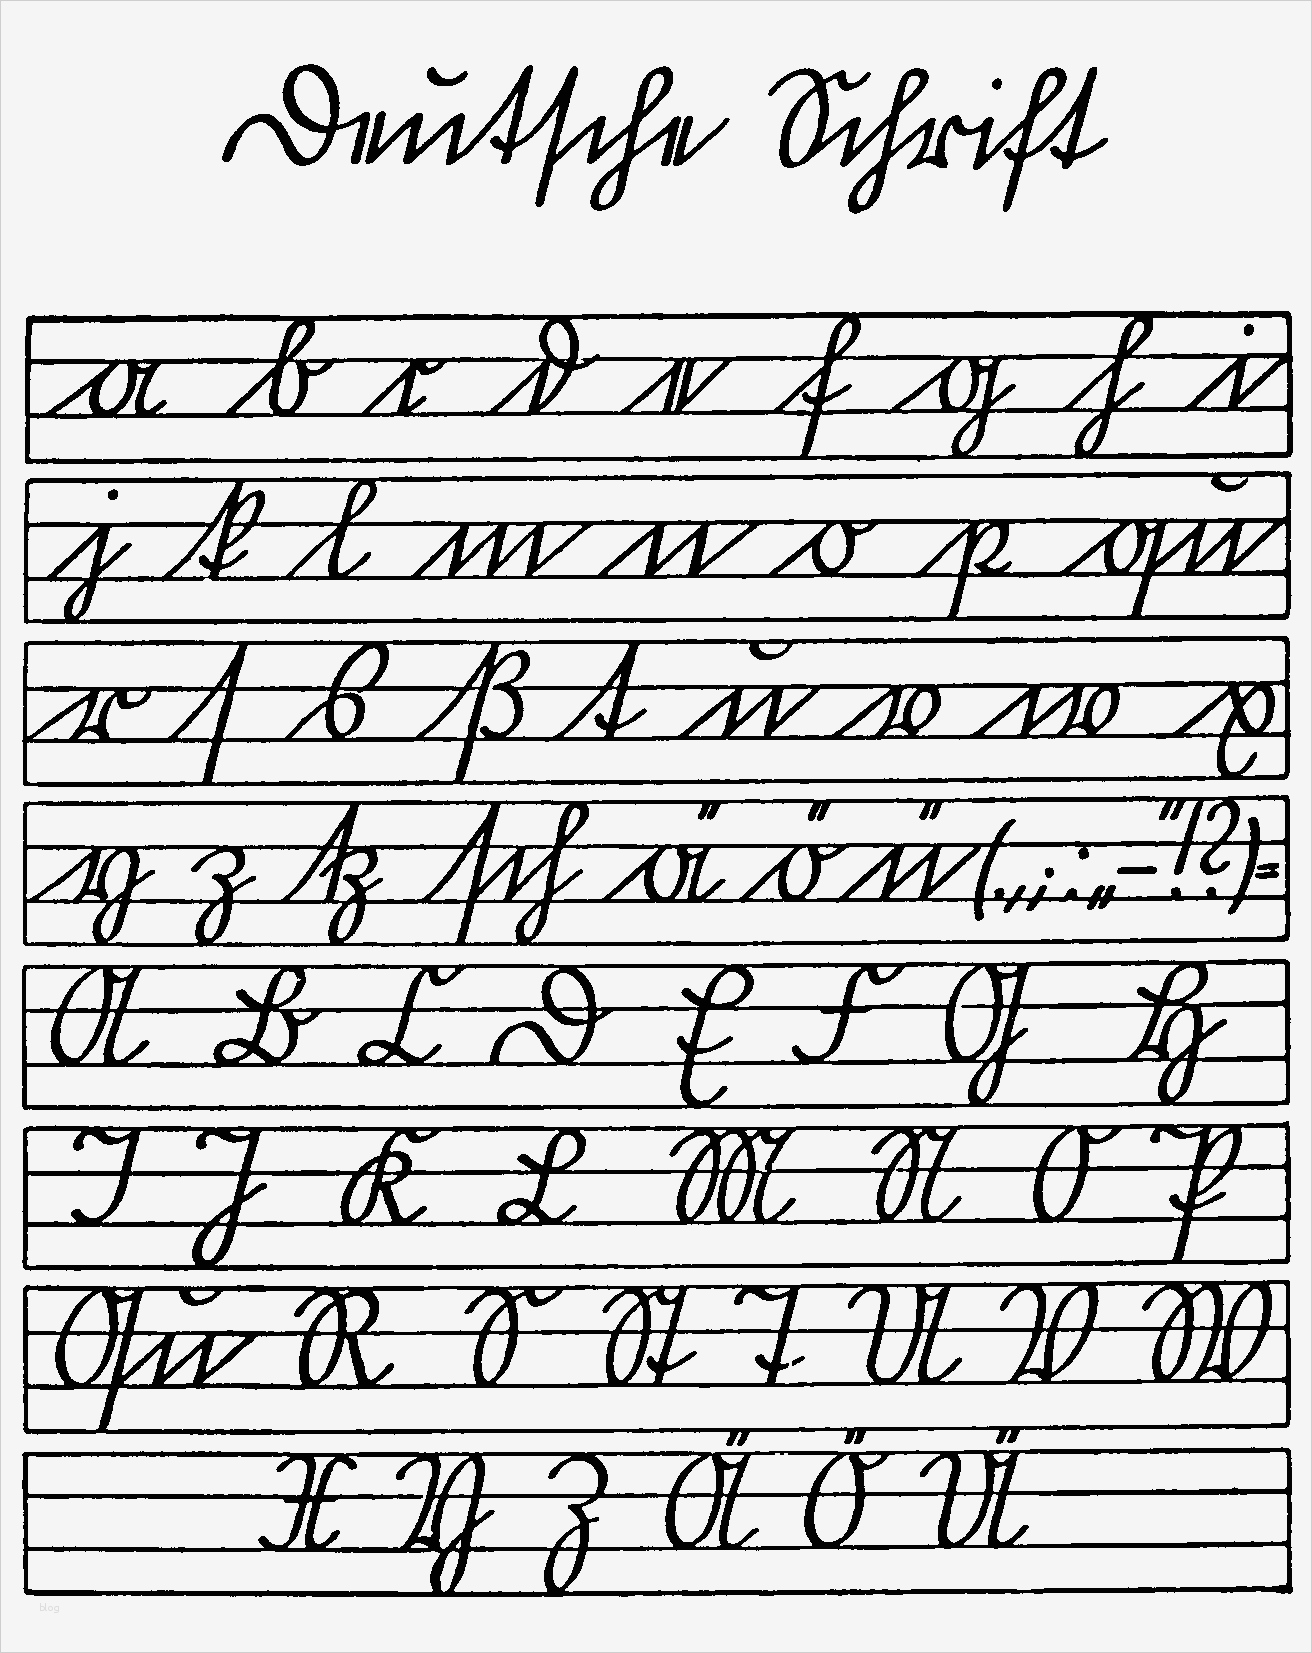 Deutsche Schrift
a b c d e f g h i
j k l m n o p qu
r ſ s ß t u v w x
y z tz ſch ä ö ü ( . , ; : . „ – " ! ? ) =
A B C D E F G H
I J K L M N O P
Qu R S St T U V W
X Y Z Ä Ö Ü
blog